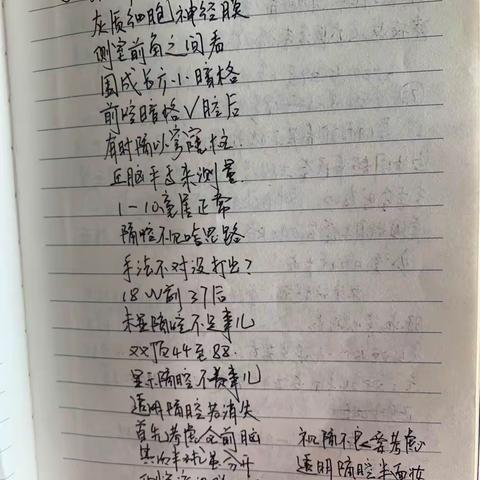 灰质细胞神经膜
侧室前角之间看
围成长方小暗格
前腔暗格√腔后
有时隔以穹窿柱
丘脑平面来测量
1-10毫厘正常
隔腔不见啥思路
手法不对没打出?
18W前37后
未显隔腔不是事儿
双顶44至88
显示隔腔不是事儿
透明隔腔若消失
首先考虑全前脑
其次半球虽分开
视隔不良要考虑
透明隔腔半面妆